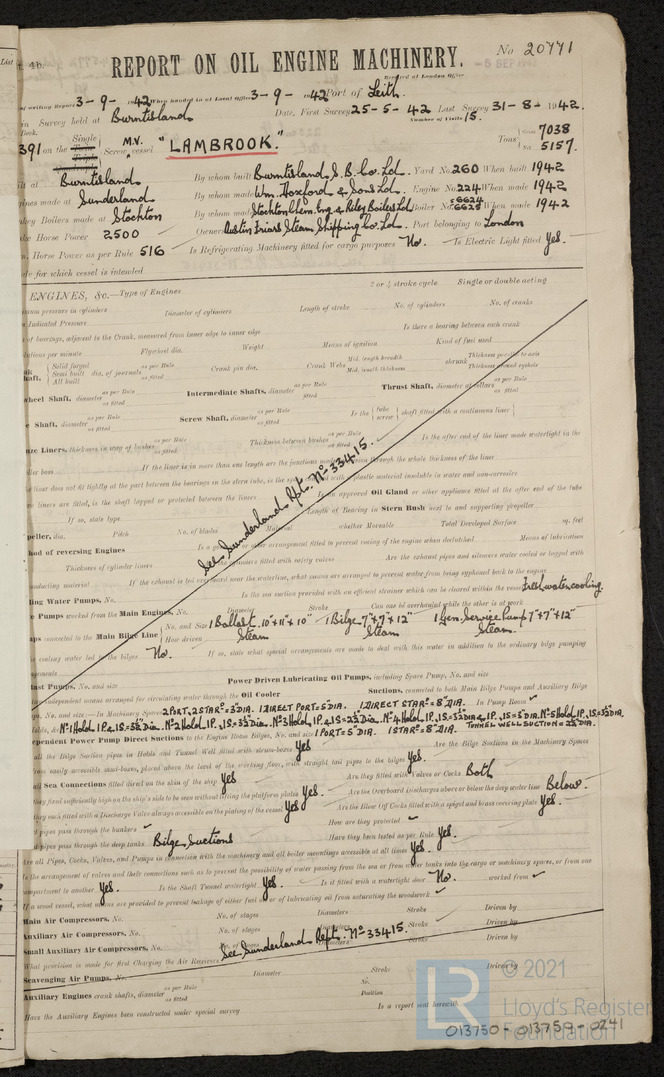 List
t. 4b.
REPORT ON OIL ENGINE MACHINERY.
No 20771
Received at London Office
-5 SEP 1942
of writing Report 3-9-1942 When handed in at Local Office 3-9-1942 Port of Leith
in Survey held at Burntisland
Date, First Survey 25-5-42 Last Survey 31-8-1942.
Number of Visits 15.
Book.
391 on the Single Screw vessel M.V. "LAMBROOK."
Tons Gross 7038
Net 5157.
ilt at Burntisland
By whom built Burntisland S.B. Co. Ld. Yard No. 260 When built 1942
gines made at Sunderland
By whom made Wm. Doxford & Sons Ld. Engine No. 224 When made 1942
nkey Boilers made at Stockton
By whom made Stockton Chem. Eng. & Riley Boilers Ld Boiler No. 6624 6625 When made 1942
ke Horse Power 2500
Owners Austin Friars Steam Shipping Co. Ld. Port belonging to London
m. Horse Power as per Rule 516
Is Refrigerating Machinery fitted for cargo purposes No. Is Electric Light fitted Yes.
ade for which vessel is intended
ENGINES, &c.—Type of Engines
2 or 4 stroke cycle Single or double acting
mum pressure in cylinders Diameter of cylinders Length of stroke No. of cylinders No. of cranks
n Indicated Pressure
of bearings, adjacent to the Crank, measured from inner edge to inner edge Is there a bearing between each crank
lutions per minute Flywheel dia. Weight Means of ignition Kind of fuel used
Solid forged
Semi built dia. of journals as per Rule as fitted Crank pin dia. Crank Webs Mid. length breadth Mid. length thickness shrunk Thickness parallel to axis Thickness around eyehole
All built
wheel Shaft, diameter as per Rule as fitted Intermediate Shafts, diameter as per Rule as fitted Thrust Shaft, diameter at collars as per Rule as fitted
e Shaft, diameter as per Rule as fitted Screw Shaft, diameter as per Rule as fitted Is the tube screw shaft fitted with a continuous liner
nze Liners, thickness in way of bushes as per Rule as fitted Thickness between bushes as per Rule as fitted Is the after end of the liner made watertight in the
ller boss If the liner is in more than one length are the junctions made by fusion through the whole thickness of the liner
e liner does not fit tightly at the part between the bearings in the stern tube, is the space charged with a plastic material insoluble in water and non-corrosive
o liners are fitted, is the shaft lapped or protected between the liners Is an approved Oil Gland or other appliance fitted at the after end of the tube
If so, state type Length of Bearing in Stern Bush next to and supporting propeller
peller, dia. Pitch No. of blades Material whether Moveable Total Developed Surface sq. feet
hod of reversing Engines Is a governor or other arrangement fitted to prevent racing of the engine when declutched Means of lubrication
Thickness of cylinder liners Are the cylinders fitted with safety valves Are the exhaust pipes and silencers water cooled or lagged with
onducting material If the exhaust is led overboard near the waterline, what means are arranged to prevent water from being syphoned back to the engine
See Sunderland Rpt. No. 33415.
ling Water Pumps, No. Is the sea suction provided with an efficient strainer which can be cleared within the vessel Fresh water cooling.
e Pumps worked from the Main Engines, No. Diameter Stroke Can one be overhauled while the other is at work
mps connected to the Main Bilge Line No. and Size 1 Ballast. 10"x11"x10" 1 Bilge. 7"x7"x12" 1 Gen. Service Pump 7"x7"x12"
How driven Steam Steam Steam.
he cooling water led to the bilges No. If so, state what special arrangements are made to deal with this water in addition to the ordinary bilge pumping
ngements
last Pumps, No. and size Power Driven Lubricating Oil Pumps, including Spare Pump, No. and size
independent means arranged for circulating water through the Oil Cooler Suctions, connected to both Main Bilge Pumps and Auxiliary Bilge
ps, No. and size:—In Machinery Spaces 2 PORT, 2 STARD = 3½ DIA. 1 DIRECT PORT = 5" DIA. 1 DIRECT STARD = 8" DIA. In Pump Room ✓
TUNNEL WELL SUCTION = 2½" DIA.
ependent Power Pump Direct Suctions to the Engine Room Bilges, No. and size 1 PORT = 5" DIA. 1 STARD = 8" DIA.
all the Bilge Suction pipes in Holds and Tunnel Well fitted with strum-boxes Yes Are the Bilge Suctions in the Machinery Spaces
from easily accessible mud-boxes, placed above the level of the working floor, with straight tail pipes to the bilges Yes.
all Sea Connections fitted direct on the skin of the ship Yes Are they fitted with Valves or Cocks Both
they fixed sufficiently high on the ship's side to be seen without lifting the platform plates Yes. Are the Overboard Discharges above or below the deep water line Below.
they each fitted with a Discharge Valve always accessible on the plating of the vessel Yes Are the Blow Off Cocks fitted with a spigot and brass covering plate Yes.
t pipes pass through the bunkers ✓ How are they protected ✓
t pipes pass through the deep tanks Bilge Suctions Have they been tested as per Rule Yes.
re all Pipes, Cocks, Valves, and Pumps in connection with the machinery and all boiler mountings accessible at all times Yes.
s the arrangement of valves and their connections such as to prevent the possibility of water passing from the sea or from water tanks into the cargo or machinery spaces, or from one
mpartment to another Yes. Is the Shaft Tunnel watertight Yes. Is it fitted with a watertight door No. worked from ✓
f a wood vessel, what means are provided to prevent leakage of either fuel or of lubricating oil from saturating the woodwork ✓
Main Air Compressors, No. No. of stages Diameters Stroke Driven by
Auxiliary Air Compressors, No. No. of stages Diameters Stroke Driven by
Small Auxiliary Air Compressors, No. No. of stages Diameters Stroke Driven by
What provision is made for first Charging the Air Receivers
See Sunderland Rept. No. 33415.
Scavenging Air Pumps, No. Diameter Stroke Driven by
Auxiliary Engines crank shafts, diameter as per Rule as fitted No. Position
Have the Auxiliary Engines been constructed under special survey Is a report sent herewith
LR
© 2021
Lloyd's Register
Foundation
013750-013759-0241